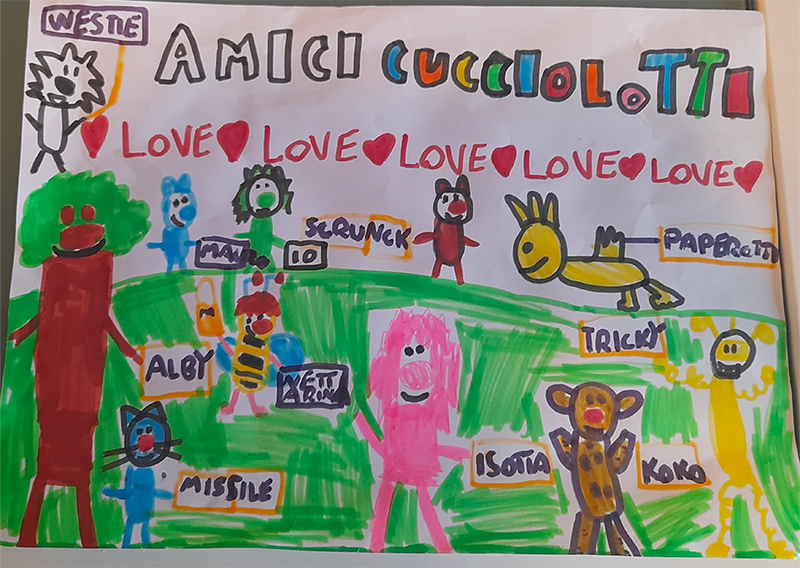 WESTIE
AMICI CUCCIOLOTTI
LOVE LOVE LOVE LOVE LOVE
SCRUNCK
IO
PAPEROTTI
TRICKY
ALBY
ISOTTA
KOKO
MISSILE